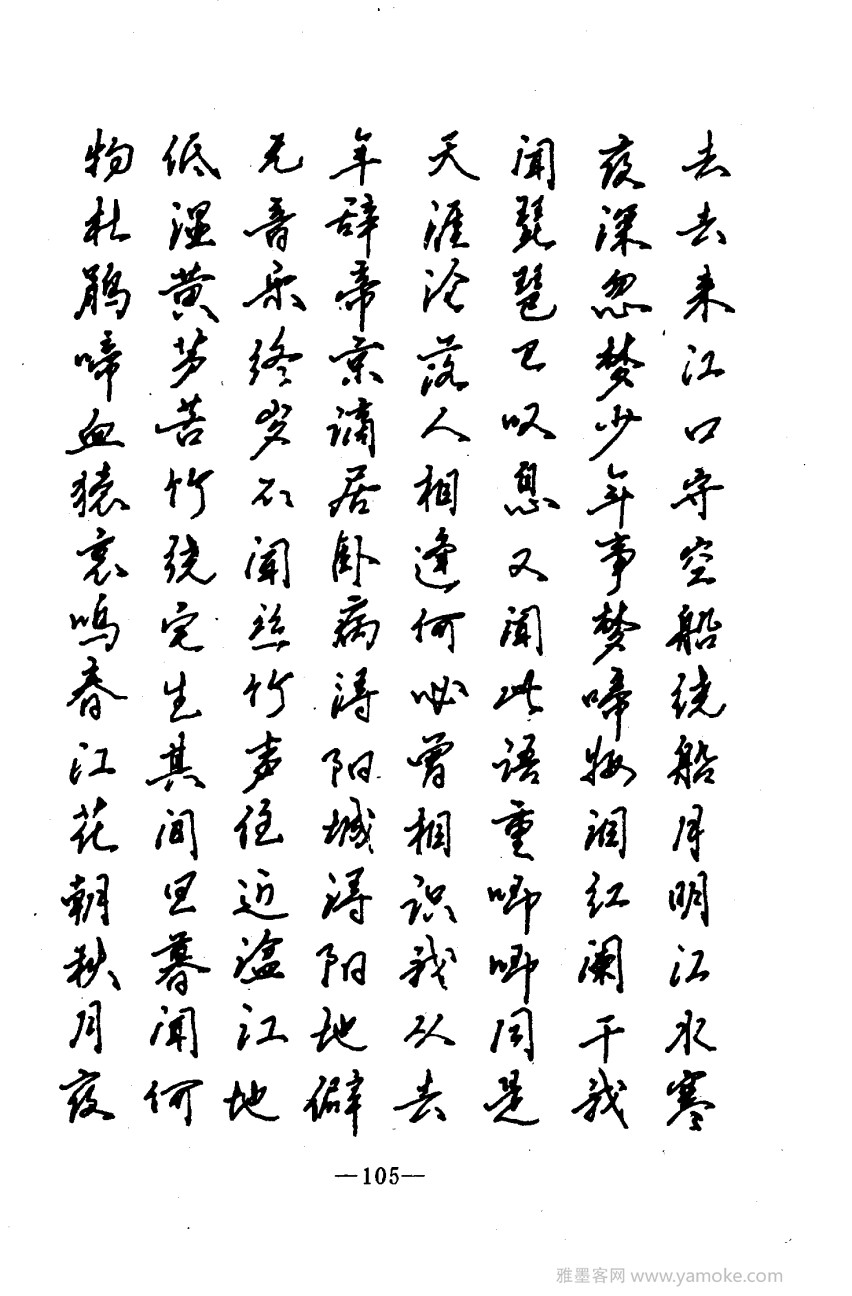 去去来江口守空船绕船月明江水寒
夜深忽梦少年事梦啼妆泪红阑干我
闻琵琶已叹息又闻此语重唧唧同是
天涯沦落人相逢何必曾相识我从去
年辞帝京谪居卧病浔阳城浔阳地僻
无音乐终岁不闻丝竹声住近湓江地
低湿黄芦苦竹绕宅生其间旦暮闻何
物杜鹃啼血猿哀鸣春江花朝秋月夜
—105—
雅墨客网 www.yamoke.com